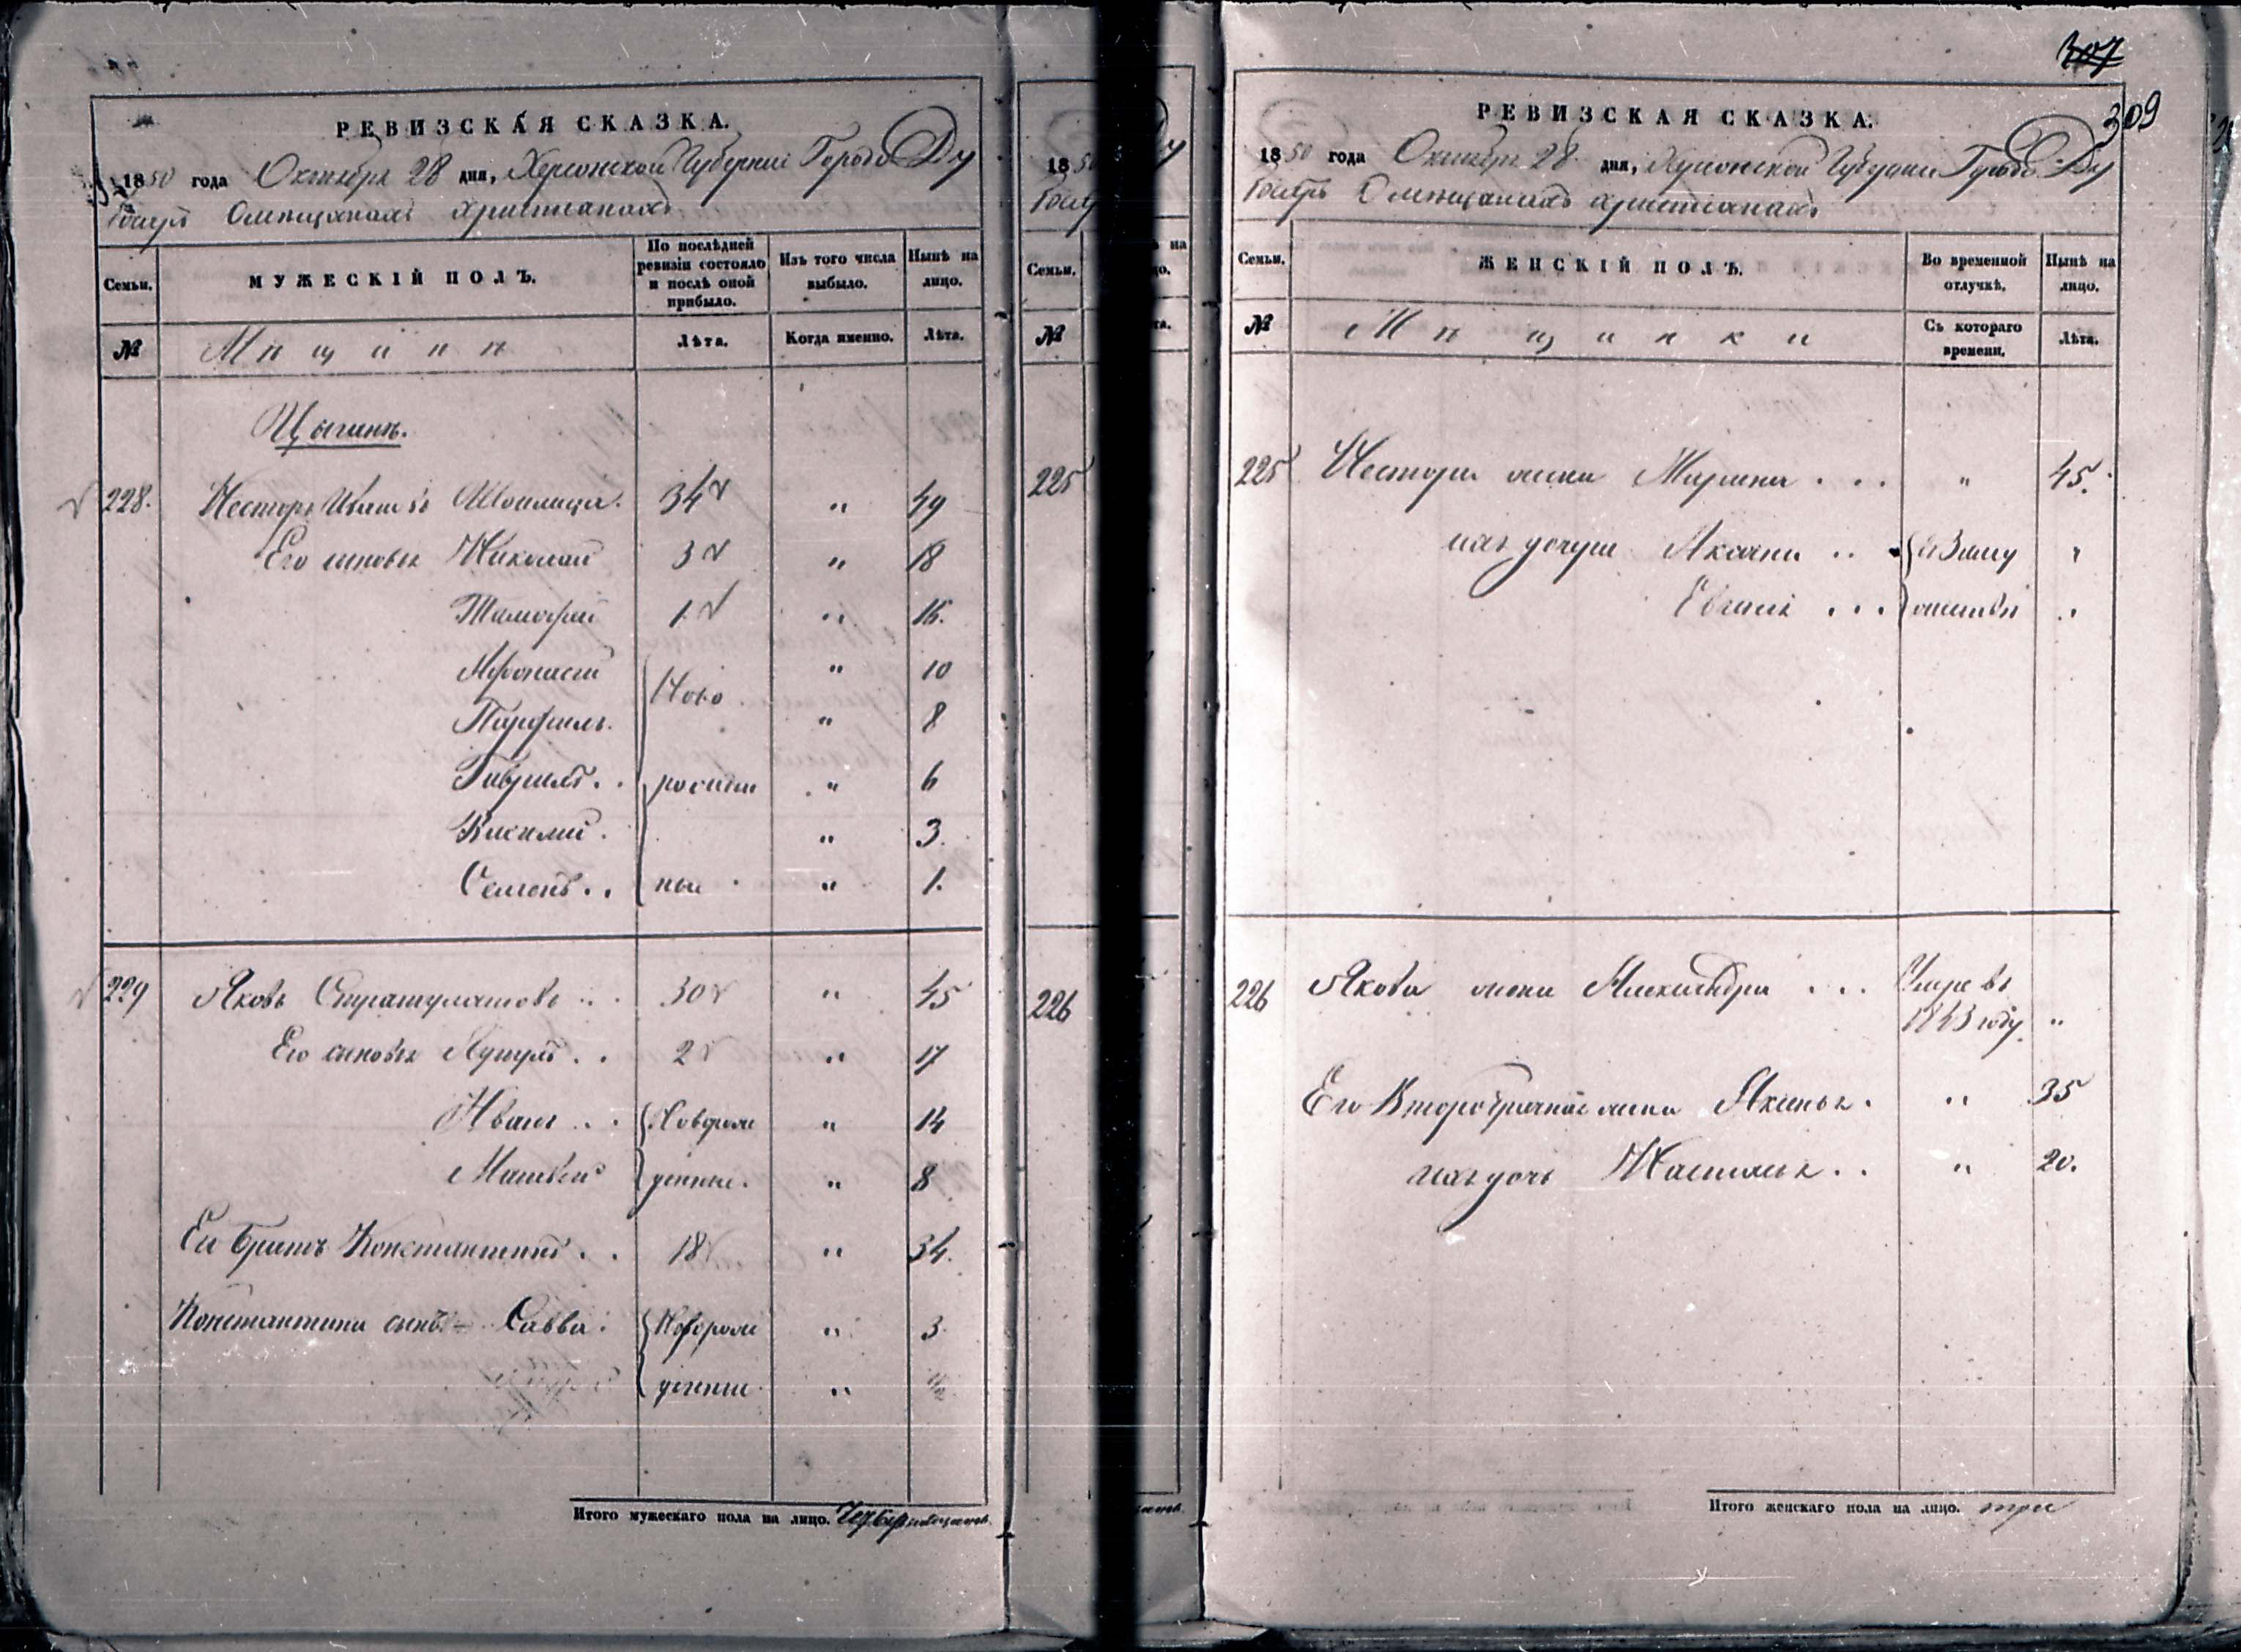 РЕВИЗСКАЯ СКАЗКА.
1850 года Октября 28 дня, Херсонской Губернии Города Ду
боссар О мещанах христианах
Семьи.
МУЖЕСКІЙ ПОЛЪ.
По послѣдней ревизіи состояло и послѣ оной прибыло.
Изъ того числа выбыло.
Нынѣ на лицо.
№
Мѣщане
Лѣта.
Когда именно.
Лѣта.
Цыгане.
228. Несторъ Иванов 34 " 49
Его сыновья Николай 3 " 18
Тимофей 1 " 16.
Афонасий " 10
Ново
Парфилъ. " 8
Гаврилъ.. рожден " 6
Василий. " 3.
Семенъ.. ные " 1.
229 Яковъ .. 30 " 45
Его сыновья .. 2 " 17
Иванъ .. Новорож " 14
Матвей денные. " 8
Его братъ Константинъ.. 18 " 34.
Константина сынъ Савва. Новорож " 3
денные. "
Итого мужескаго пола на лицо.
1850
Семьи.
№
225
226
307
309
РЕВИЗСКАЯ СКАЗКА.
1850 года Октября 28 дня, Херсонской Губернии Города Ду
боссар О мещанах христианах
Семьи.
ЖЕНСКІЙ ПОЛЪ.
Во временной отлучкѣ.
Нынѣ на лицо.
№
Мѣщанки
Съ котораго времени.
Лѣта.
225 Нестора жена Марина ... " 45.
их дочери .. в Заму "
... жестве "
226 Якова жена Александра ... Умре въ
1843 году. "
Его Второбрачная жена Аксинья. " 35
их дочь .. " 20.
Итого женскаго пола на лицо. три